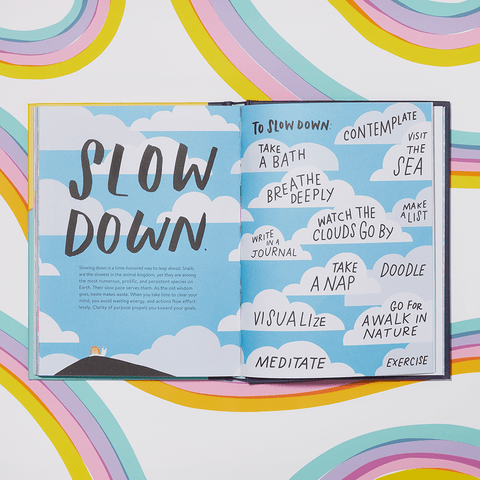 SLOW
DOWN.
Slowing down is a time-honored way to leap ahead. Snails
are the slowest in the animal kingdom, yet they are among
the most numerous, prolific, and persistent species on
Earth. Their slow pace serves them. As the old wisdom
goes, haste makes waste. When you take time to clear your
mind, you avoid wasting energy, and actions flow effort-
lessly. Clarity of purpose propels you toward your goals.
TO SLOW DOWN:
CONTEMPLATE
TAKE
A BATH
VISIT
THE
SEA
BREATHE
DEEPLY
MAKE
A LIST
WATCH THE
CLOUDS GO BY
WRITE
IN A
JOURNAL
TAKE
A NAP
DOODLE
VISUALIZE
GO FOR
A WALK IN
NATURE
MEDITATE
EXERCISE